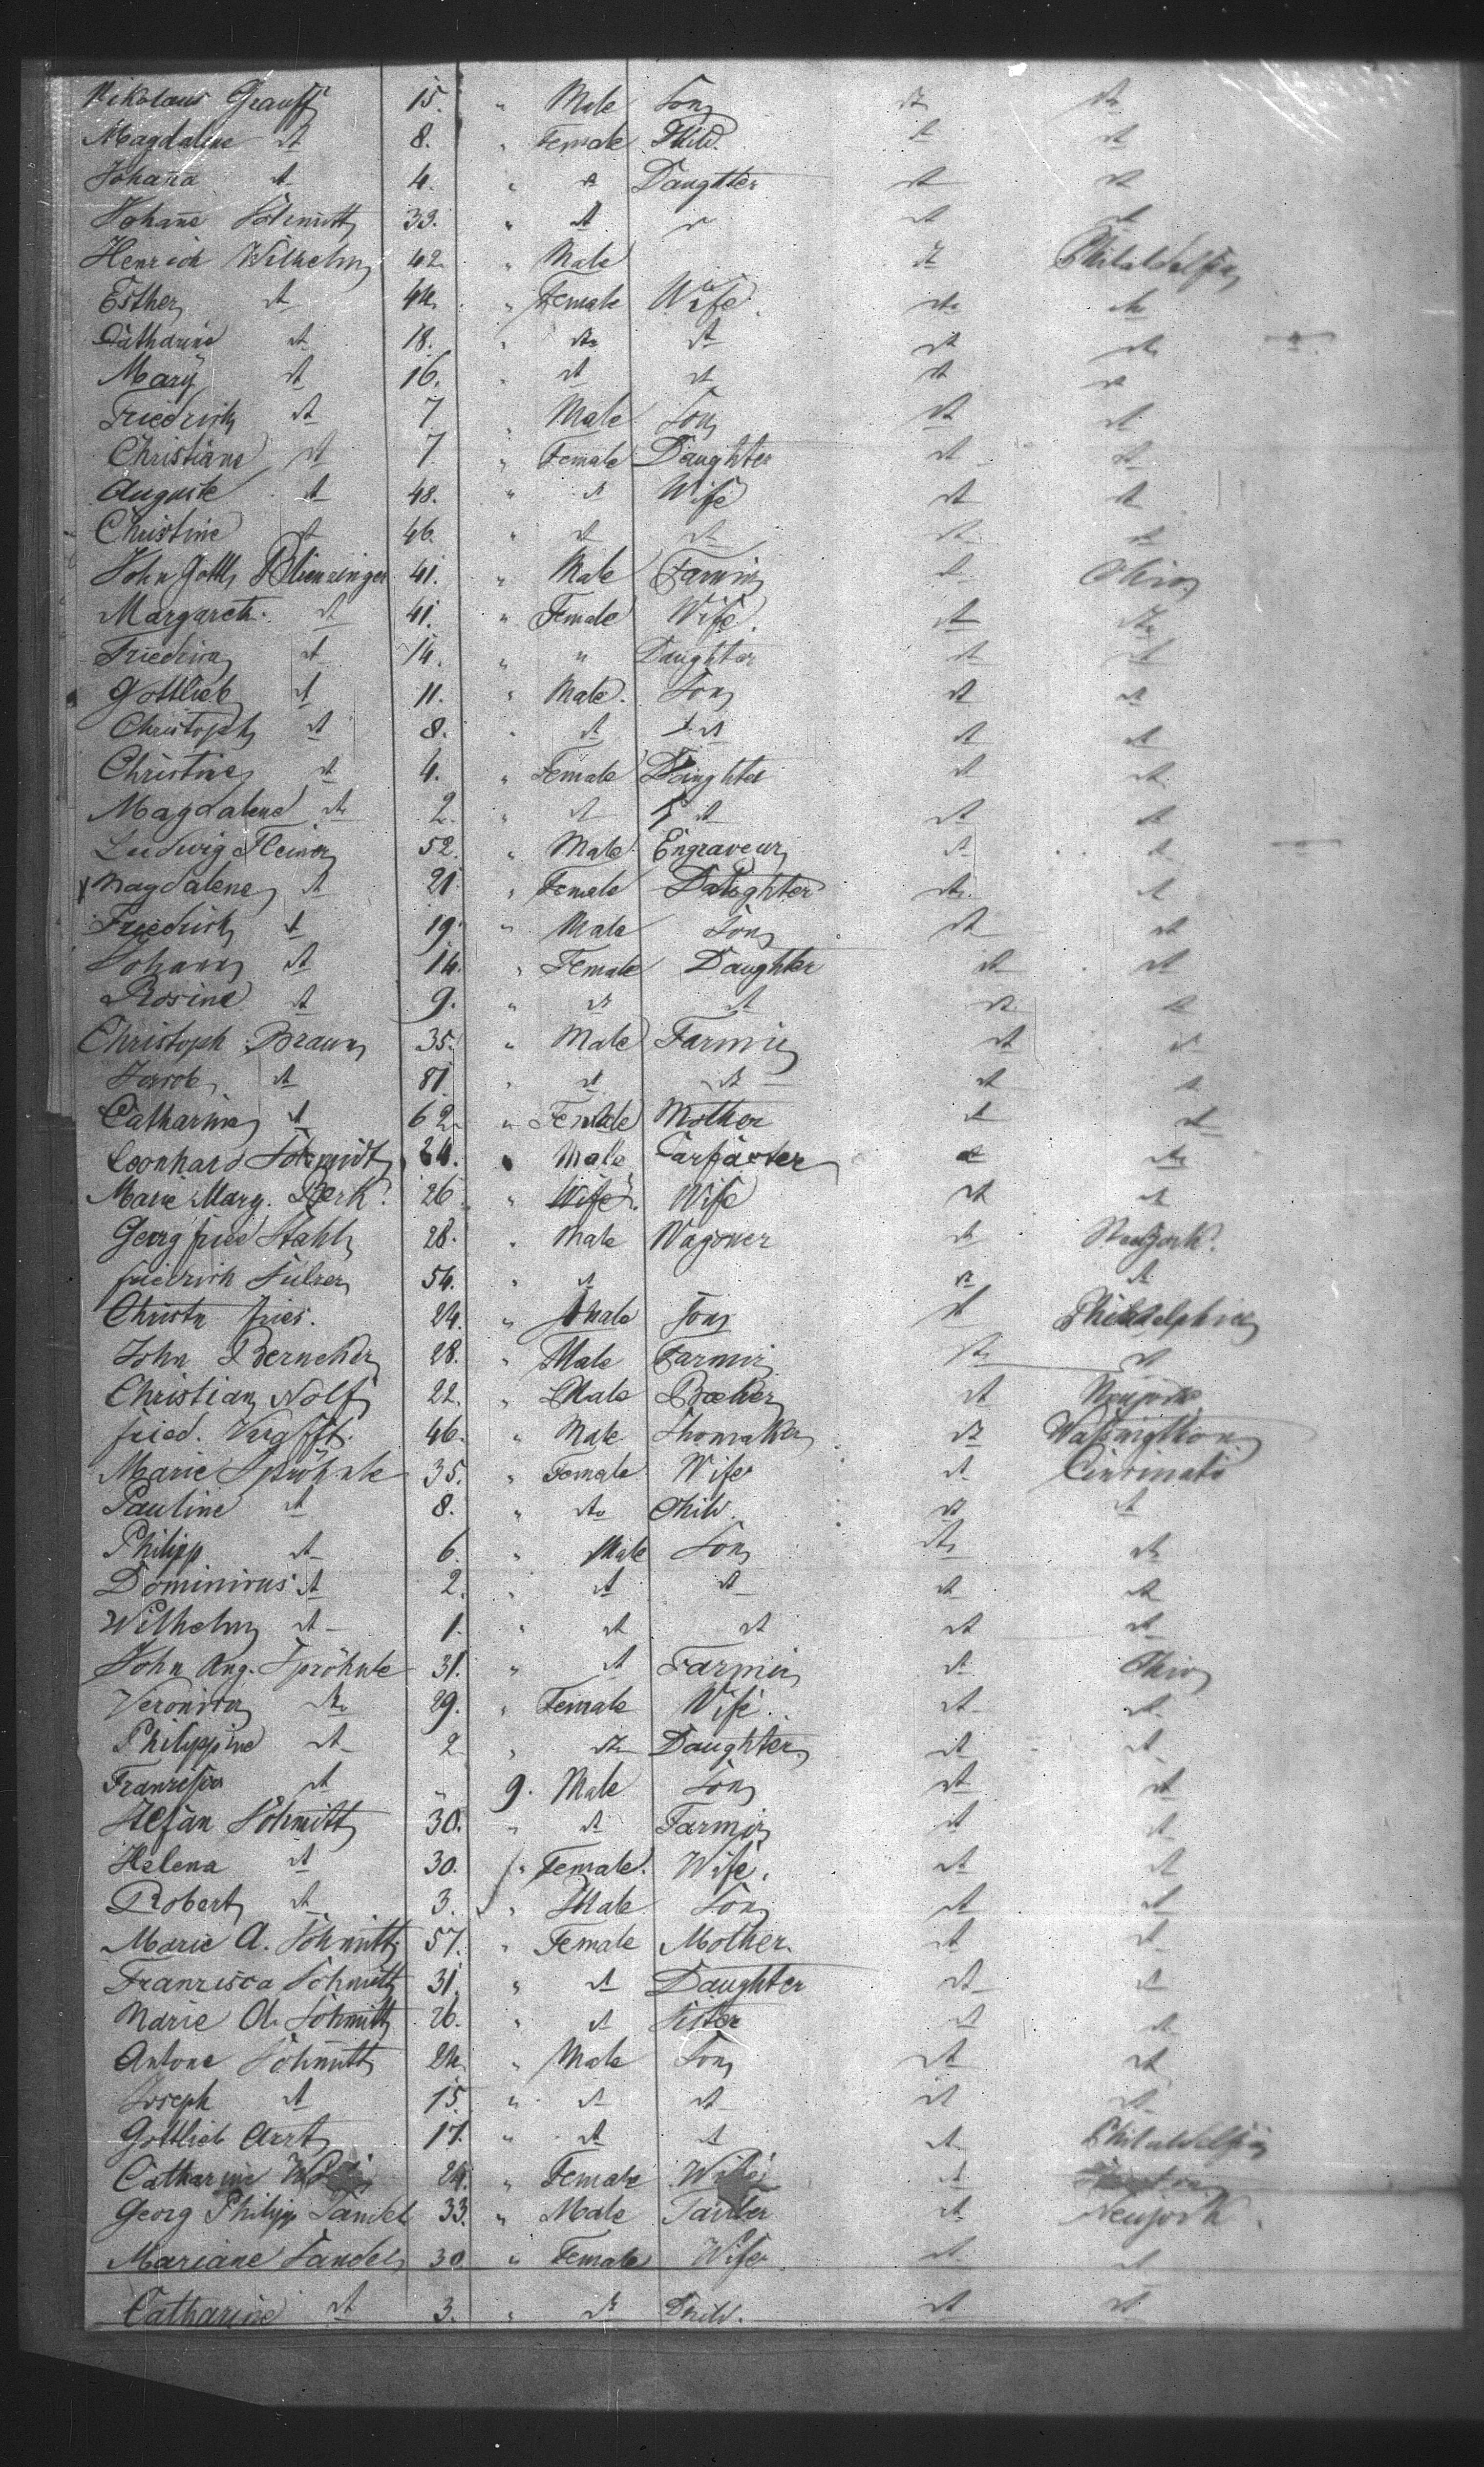 Nikolaus Grauff 15. " Male Son dt dt
Magdalene dt 8. " Female Child. dt dt
Johana dt 4. " dt Daugtter dt dt
Johane Schmitt 33. " dt dt dt
Henrich Wilhelm 42. " Male dt Philaldelfia
Esther dt 44. " Female Wife. dt dt
Catharine dt 18. " dt dt dt dt
Mary dt 16. " dt dt dt dt
Friedrich dt 7 " Male Son dt dt
Christiane dt 7 " Female Daughter dt dt
Auguste dt 48. " dt Wife dt dt
Christine dt 46. " dt dt dt dt
John Gottl. 41. " Male Farmin dt Ohio
Margareth. dt 41. " Female Wife. dt dt
dt 14. " " Daughter dt dt
Gottlieb dt 11. " Male. Son dt dt
Christoph dt 8. " dt dt dt dt
Christine dt 4. " Female Daughter dt dt
Magdalene dt 2. " dt dt dt dt
Ludwig 52. " Male Engraveur dt dt
Magdalene dt 21 " Female Daughter dt dt
Friedrich dt 19. " Male Son dt dt
Johana dt 14. " Female Daughter dt dt
Rosine dt 9. " dt dt dt dt
Christoph Braun 35. " Male Farmin dt dt
Jacob dt 81 " dt dt dt dt
Catharine dt 62. " Female Mother dt dt
Leonhard Schmidt 24. " Male dt dt
Marie Marg. Berk. 26 " Wife. Wife dt dt
Georg fried Stahl 28. " Male Wagoner dt Neujork.
friedrich Sulzer 54. " dt dt dt
Christn fries. 24. " Male Son dt Philadelphia
John Berneker 28. " Male Farmin dt dt
Christian Nolf 22. " Male Backer dt Neujork
fried. 46. " Male dt Wasingthon
Marie Spröhnle 35. " Female Wife dt Cincinati
Pauline dt 8. " dt Child. dt dt
Philipp dt 6. " Male Son dt dt
Dominicus dt 2. " dt dt dt dt
Wilhelm dt 1. " dt dt dt dt
John Aug. Spröhnle 31. " dt Farmin dt Ohio
Veronica dt 29. " Female Wife. dt dt
Philippine dt 2 " dt Daughter dt dt
Franzisca dt " 9. Male Son dt dt
Stefan Schmitt 30. " dt Farmin dt dt
Helena dt 30. " Female. Wife. dt dt
Robert dt 3. " Male Son dt dt
Marie A. Schmitt 57. " Female Mother. dt dt
Franzisca Schmitt 31. " dt Daughter dt dt
Marie A. Schmitt 26. " dt Sister dt dt
Antone Schmitt 24. " Male Son dt dt
Joseph dt 15. " dt dt dt dt
Gottlieb Arzt 17. " dt dt dt Philaldelfia
Catharine 24. " Female dt
Georg Philipp Sandel 33. " Male Tailer dt Neujork.
Mariane Sandel 30 " Female Wife dt dt
Catharine dt 3. " dt Child. dt dt